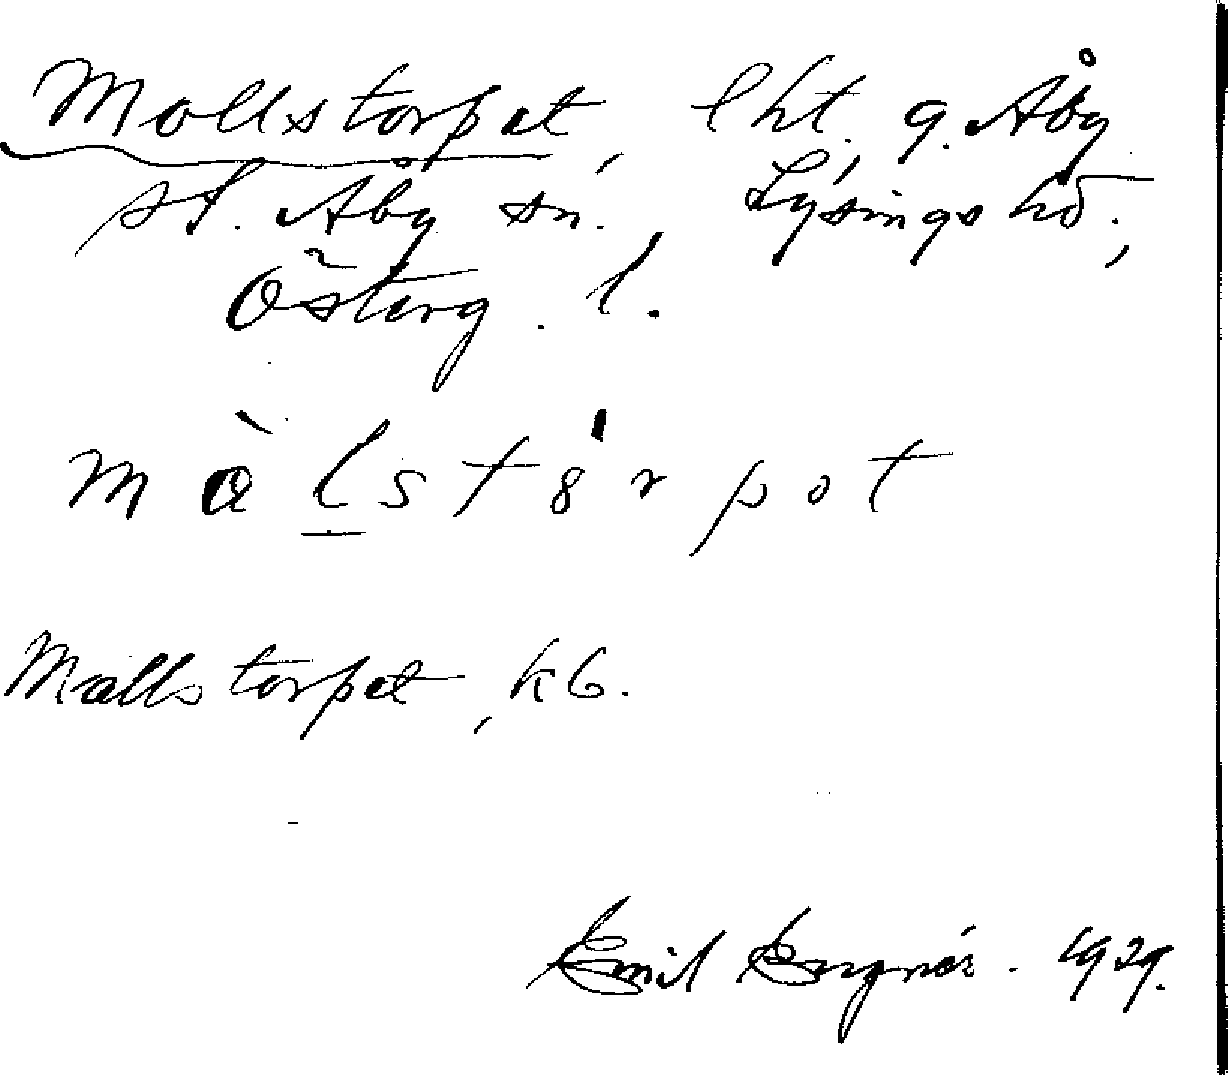 Mollstorpet, lht. g. Åby
st. Åby sn., Lysings hd.,
Österg. l.
mòlstö́rpot
Mallstorpet, kb.
Emil Engnér. 1929.